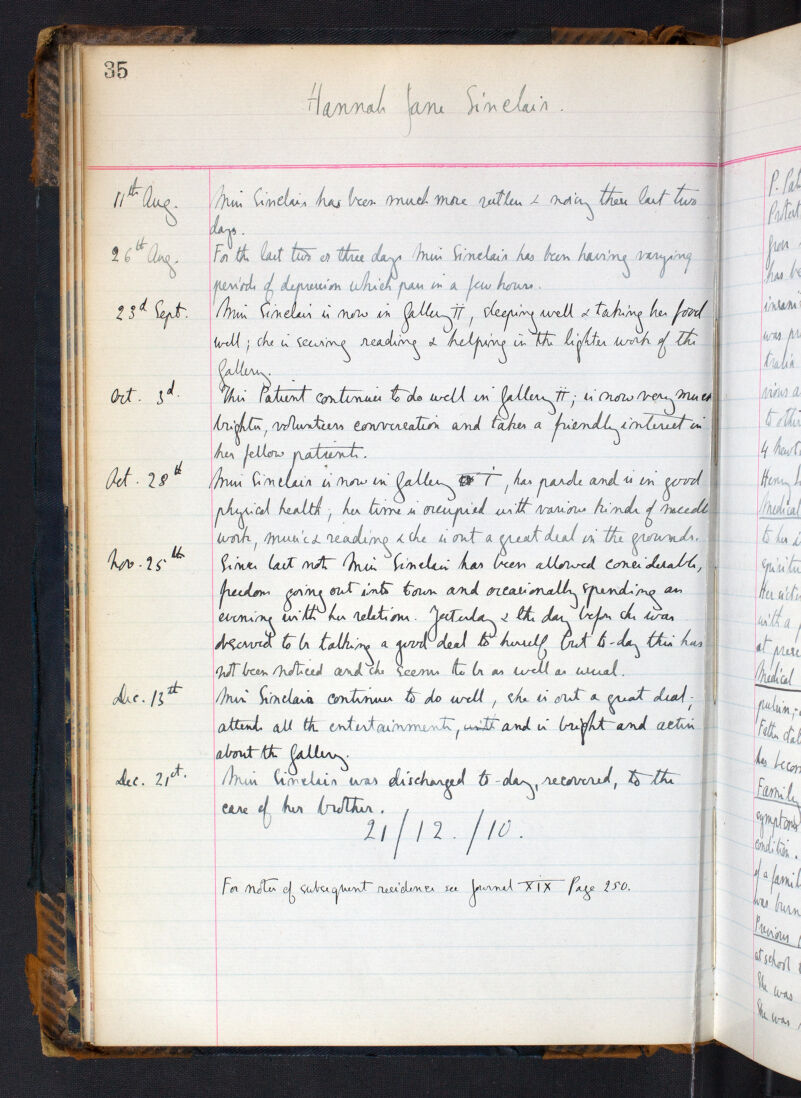 35
Hannah Jane Sinclair.
11th Aug. Miss Sinclair has been much more restless & noisy these last two
days.
26th Aug. For the last two or three days Miss Sinclair has been having varying
periods of depression which pass in a few hours.
23d Sept. Miss Sinclair is now in Gallery II, sleeping well & taking her food
well; she is sewing reading & helping in the lighter work of the
Gallery.
Oct. 3d. This Patient continues to do well in Gallery II; is now very much
brighter, volunteers conversation and takes a friendly interest in
her fellow patients.
Oct. 28th Miss Sinclair is now in Gallery I, has parole and is in good
physical health; her time is occupied with various kinds of needle
work, music & reading & she is out a great deal in the grounds.
Nov. 25th Since last note Miss Sinclair has been allowed considerable,
freedom going out into town and occasionally spending an
evening with her relations. Yesterday & the day before she was
observed to be talking a good deal to herself but to-day this has
not been noticed and she seems to be as well as usual.
Dec. 13th Miss Sinclair continues to do well, she is out a great deal;
attends all the entertainments, and is bright and active
about the Gallery.
Dec. 21st. Miss Sinclair was discharged to-day, recovered, to the
care of her brother.
21/12./10.
For notes of subsequent residence see Journal XIX Page 250.
has be
was
to othe
4 hawt
Henry
Medical
to her
with a
at prese
Medical
Family
symptoms
condition.
of a famil
was burn
Previous
at school
She was
She was